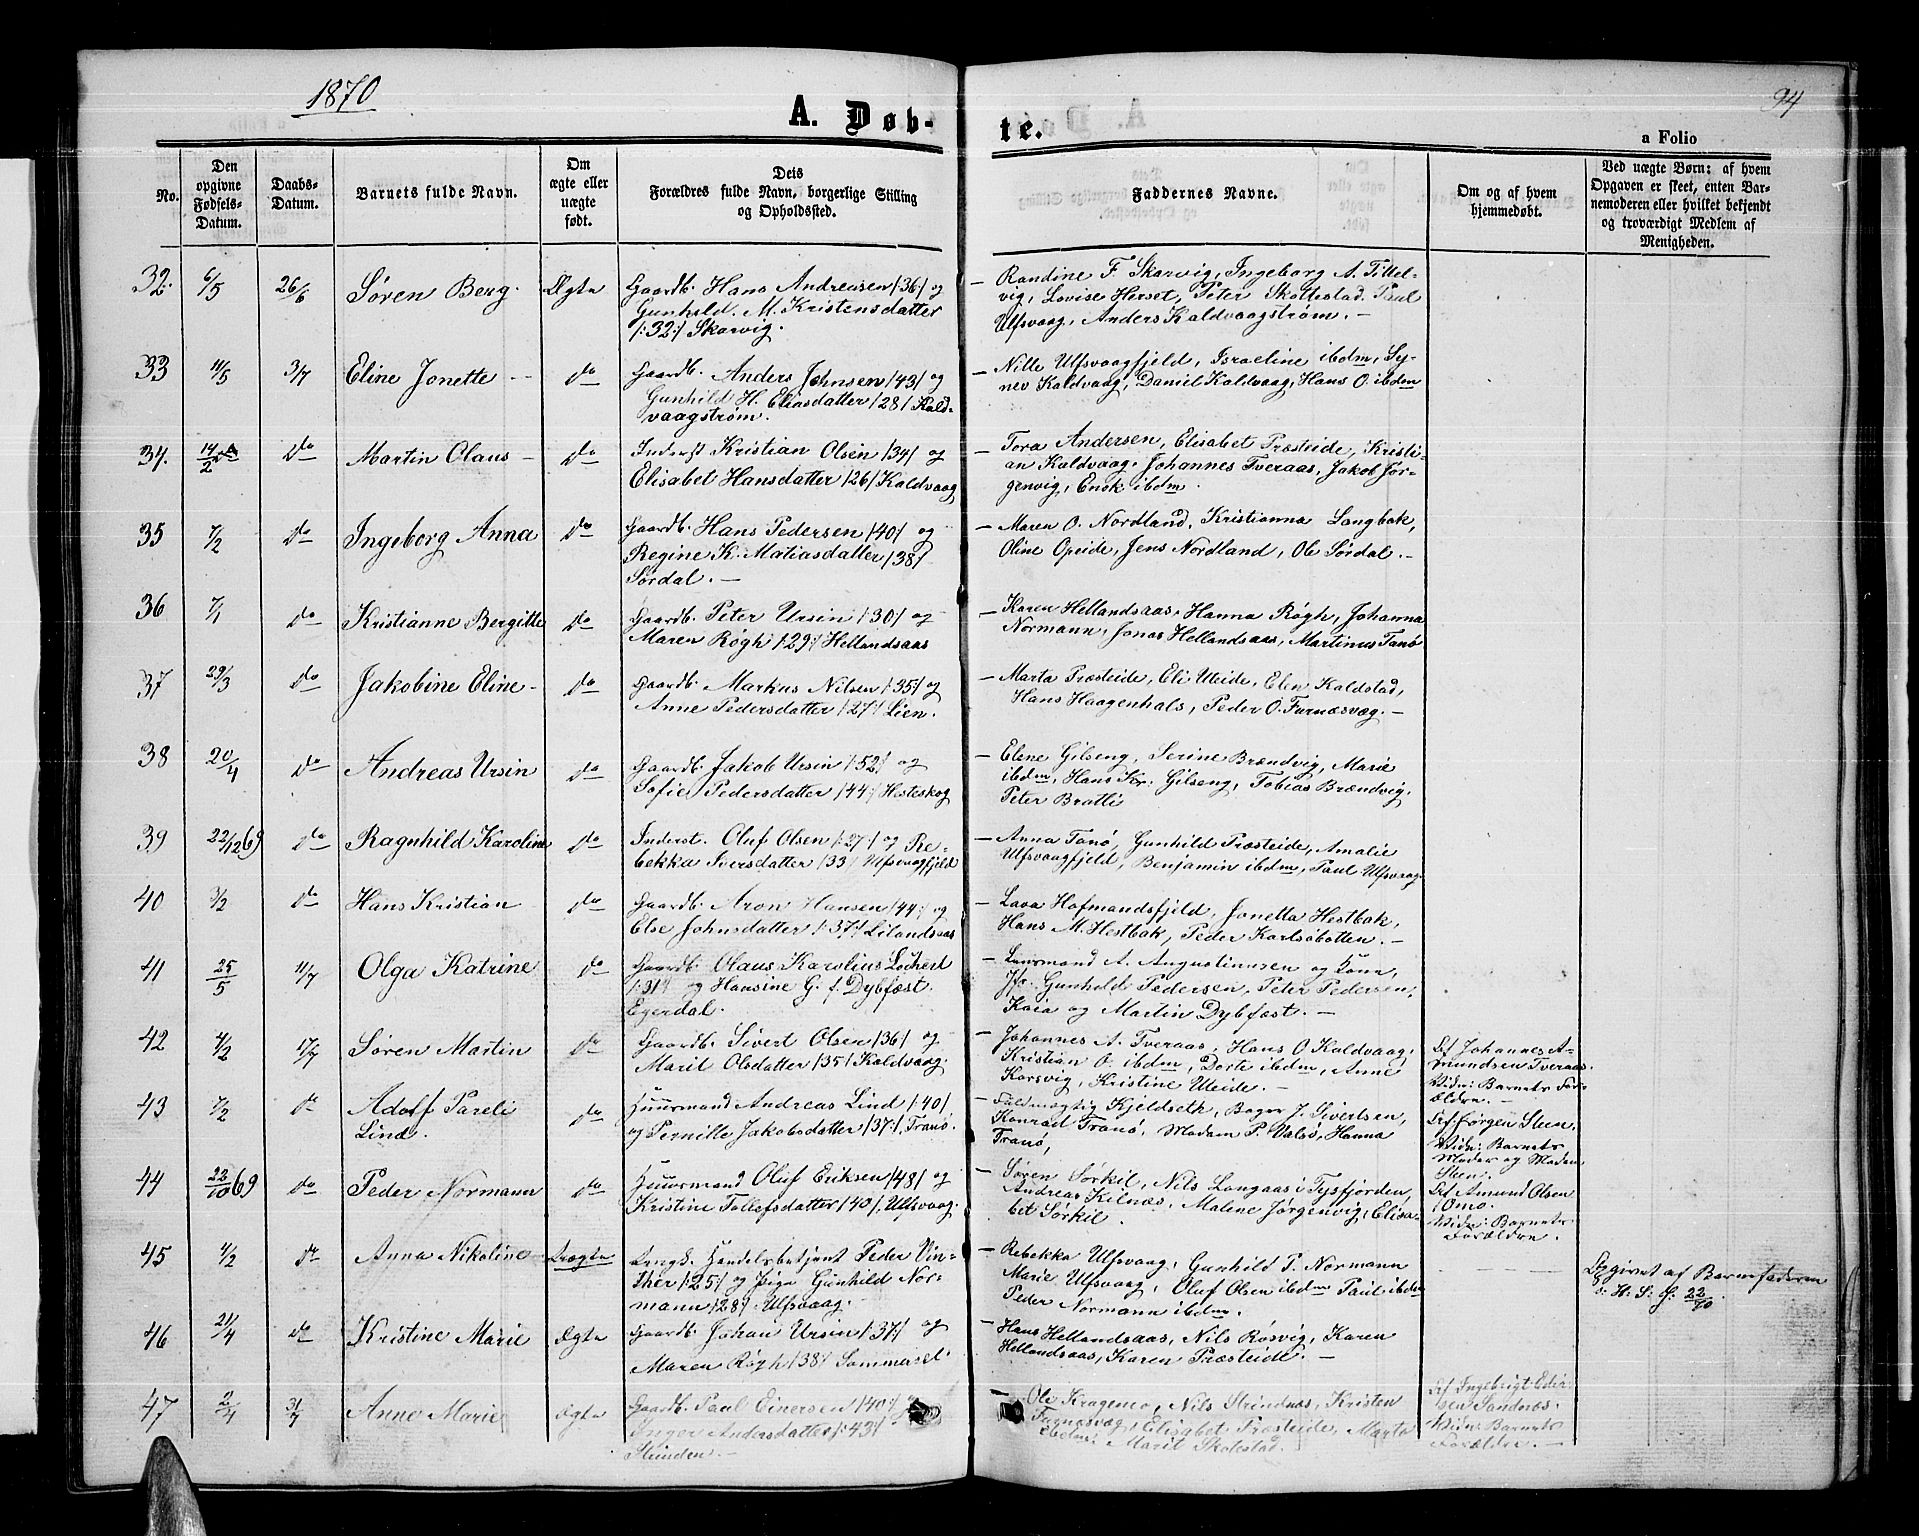 1870
A. Døb-
te.
94
a Folio
No.
Den opgivne Fødsels-Datum.
Daabs-Datum.
Barnets fulde Navn.
Om ægte eller uægte født.
Dets Forældres fulde Navn, borgerlige Stilling og Opholdssted.
Faddernes Navne.
Om og af hvem hjemmedøbt.
Ved uægte Børn: af hvem Opgaven er skeet, enten Barnemoderen eller hvilket bekjendt og troværdigt Medlem af Menigheden.
32. 6/5 26/6 Søren Berg. Ægte
Gaardb. Hans Andreasen /36/ og
Gunhild. M. Kristensdatter
/:32:/ Skarvig.
— Randine F. Skarvig, Ingeborg A. Tittel-
vig, Lovise Herset, Peter Skottestad. Paul
Ulfsvaag, Anders Kaldvaagstrøm. —
33 11/5 3/7 Eline Jonette — do
Gaardb. Anders Johnsen /43/ og
Gunhild H. Eliasdatter /28/ Kald-
vaagstrøm.
— Nille Ulfsvaagfjeld, Israeline ibdm, Sy-
nev Kaldvaag, Daniel Kaldvaag, Hans O. ibdm
34. 14/2 do Martin Olaus — do
Inderst Kristian Olsen /34/ og
Elisabet Hansdatter /26/ Kaldvaag
— Tora Andersen, Elisabet Præsteide, Kristi-
an Kaldvaag, Johannes Tveraas, Jakob Jør-
genvig, Enok ibdm.
35 7/2 do Ingeborg Anna do
Gaardb. Hans Pedersen /40/ og
Regine K. Matiasdatter /38/
Sørdal. —
— Maren O. Nordland, Kristianna Langbak,
Oline Opeide, Jens Nordland, Ole Sørdal. —
36 7/1 do Kristianne Bergitte do
Gaardb. Peter Ursin /30/ og
Maren Røgh /:29:/ Hellandsaas
— Karen Hellandsaas, Hanna Røgh, Johanna
Normann, Jonas Hellandsaas, Martinus Tanø
37 29/3 do Jakobine Eline — do
Gaardb. Markus Nilsen /:35/ og
Anne Pedersdatter /27/ Lien.
— Marta Præsteide, Eli Uteide, Elen Kaldstad,
Hans Haagenhals, Peder O. Furnæsvæg. —
38 20/4 do Andreas Ursin do
Gaardb. Jakob Ursin /:52/ og
Sofie Pedersdatter /44:/ Hesteskog
— Elene Gilseng, Serine Brændvig, Marie
ibdm, Hans Kr. Gilseng, Tobias Brændvig,
Peter Bratli
39 22/12 69 do Ragnhild Karoline do
Inderst. Oluf Olsen /:27:/ og Re-
bekka Iversdatter /33/ Ulfsvaagfjeld
— Anna Tanø, Gunhild Præsteide, Amalie
Ulfsvaagfjeld, Benjamin ibdm, Paul Ulfsvaag.
40 3/2 do Hans Kristian do
Gaardb. Aron Hansen /44:/ og
Else Johnsdatter /:37:/ Lilandsaas
— Lava Hofmandsfjeld, Jonetta Hestbak,
Hans M. Hestbak, Peder Karlsøbotten. —
41 25/5 11/7 Olga Katrine do
Gaardb. Olaus Karolius Lockert
/:31/ og Hansine G. f. Dybfæst.
Egerdal.
— Lensmand A. Augustinusen og Kone,
Jfr. Gunhild Pedersen, Peter Pedersen,
Kaia og Martin Dybfæst. —
42 4/2 17/7 Søren Martin do
Gaardb. Sivert Olsen /36/ og
Marit Olsdatter /35/ Kaldvaag.
— Johannes A. Tveraas, Hans O Kaldvaag,
Kristian O. ibdm, Dorte ibdm, Anne
Korsvig, Kristine Uteide. —
Af Johannes A-
mundsen Tveraas.
Vidn: Barnets For-
ældre. —
43 7/2 do Adolf Pareli
Lind.
do
Huusmand Andreas Lind /:40/
og Pernille Jakobsdatter /37:/, Tranø.
— Fuldmægtig Kjeldseth, Bager J. Sivertsen,
Konrad Tranø, Madam P. Valsø, Hanna
Tranø,
Af Jørgen Steen.
Vidn: Barnets
Moder og Madam
Steen.
44 22/10 69 do Peder Normann do
Huusmand Oluf Eriksen /48/ og
Kristine Tollefsdatter /40/, Ulfsvaag.
— Søren Sørkil, Nils Langaas i Tysfjorden,
Andreas Kilnæs, Malene Jørgenvig, Elisa-
bet Sørkil.
Af Amund Olsen
Omo.
Vidn: Barnets
Forældre.
45 4/2 do Anna Nikoline Uægte
Ungk. Handelsbetjent Peder Vin-
ther /:25/ og Pige Gunhild Nor-
mann /28/ Ulfsvaag.
— Rebekka Ulfsvaag, Gunhild P. Normann
Marie Ulfsvaag, Oluf Olsen ibdm Paul ibdm
Peder Normann ibdm.
Opgivet af Barnefaderen
s: H: S: G: 22/70.
46 21/4 do Kristine Marie Ægte
Gaardb. Johan Ursin /:37:/ og
Maren Røgh /38/ Sommerset
— Hans Hellandsaas, Nils Røsvig, Karen
Hellandsaas, Karen Præsteide. —
47 2/4 31/7 Anne Marie Ægte
Gaardb. Paul Einersen /40:/ og
Inger Andersdatter /:43/
Strinden —
— Ole Kragemo, Nils Strindnæs, Kristen
Furnæsvæg, Elisabet Præsteide, Marta
ibdm, Marit Skotestad.
Af Ingebrigt Eder-
sen Sandnæs.
Vidn: Barnets
Forældre. —